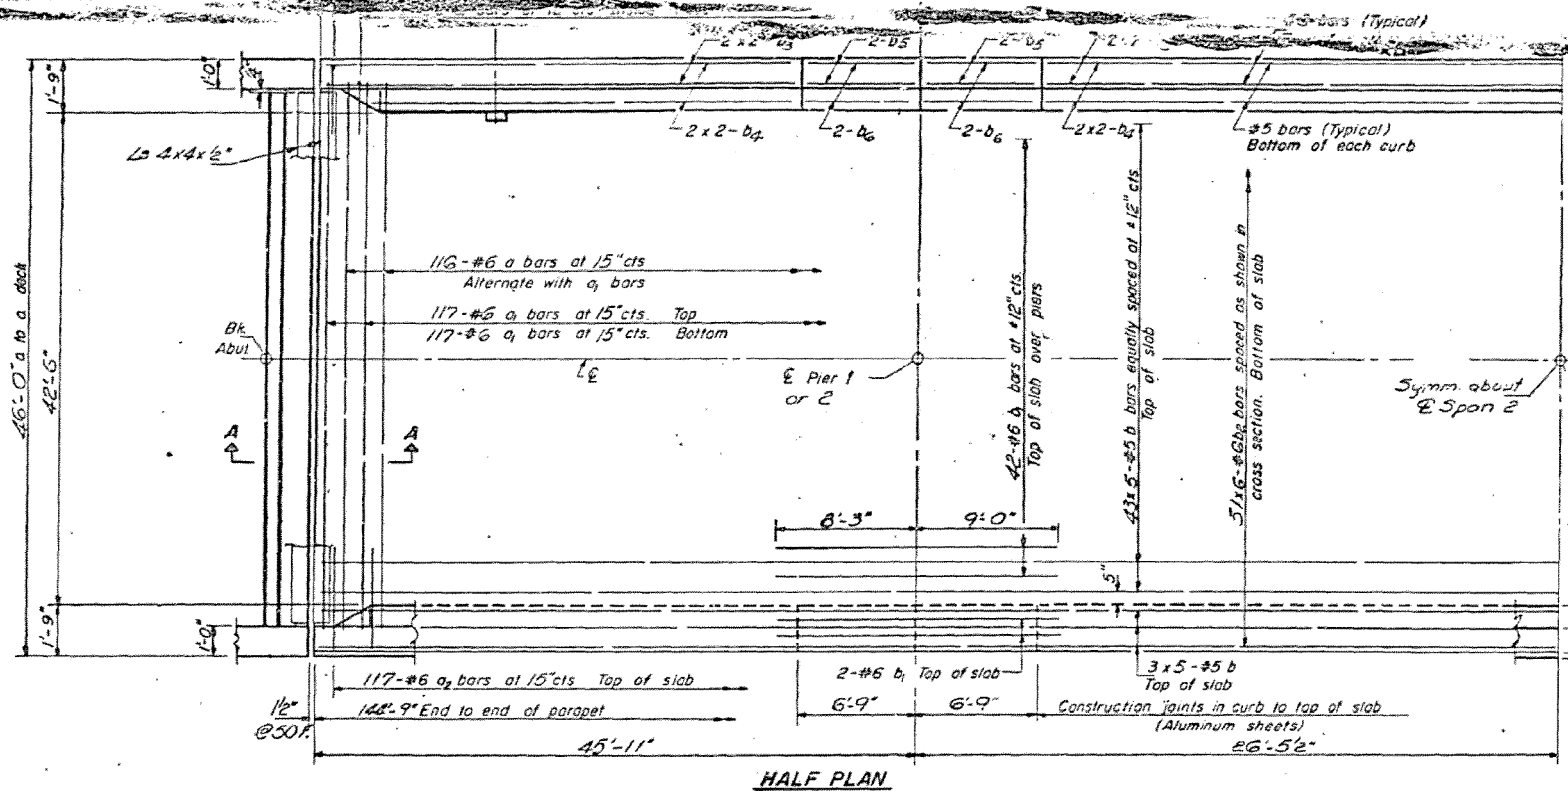 bars (Typical)
2 x 2 - b3
2-b5
2-b5
1'-9"
1'-0"
2 x 2-b4
2-b6
2-b6
2x2-b4
#5 bars (Typical)
Bottom of each curb
Ls 4x4x½"
46'-0" o to o deck
42'-6"
116-#6 a bars at 15"cts
Alternate with a1 bars
117-#6 a1 bars at 15"cts. Top
117-#6 a1 bars at 15"cts. Bottom
Bk.
Abut.
℄
℄ Pier 1
or 2
42-#6 b1 bars at ±12"cts.
Top of slab over piers
43x5-#5 b bars equally spaced at ±12" cts
Top of slab
51x6-#6b2 bars spaced as shown in
cross section. Bottom of slab
Symm. about
℄ Span 2
A
A
8'-3"
9'-0"
5"
1'-9"
1'-0"
117-#6 a2 bars at 15"cts Top of slab
2-#6 b1 Top of slab
3x5-#5 b
Top of slab
144'-9" End to end of parapet
1½"
@50F.
6'-9"
6'-9"
Construction joints in curb to top of slab
(Aluminum sheets)
45'-11"
26'-5½"
HALF PLAN